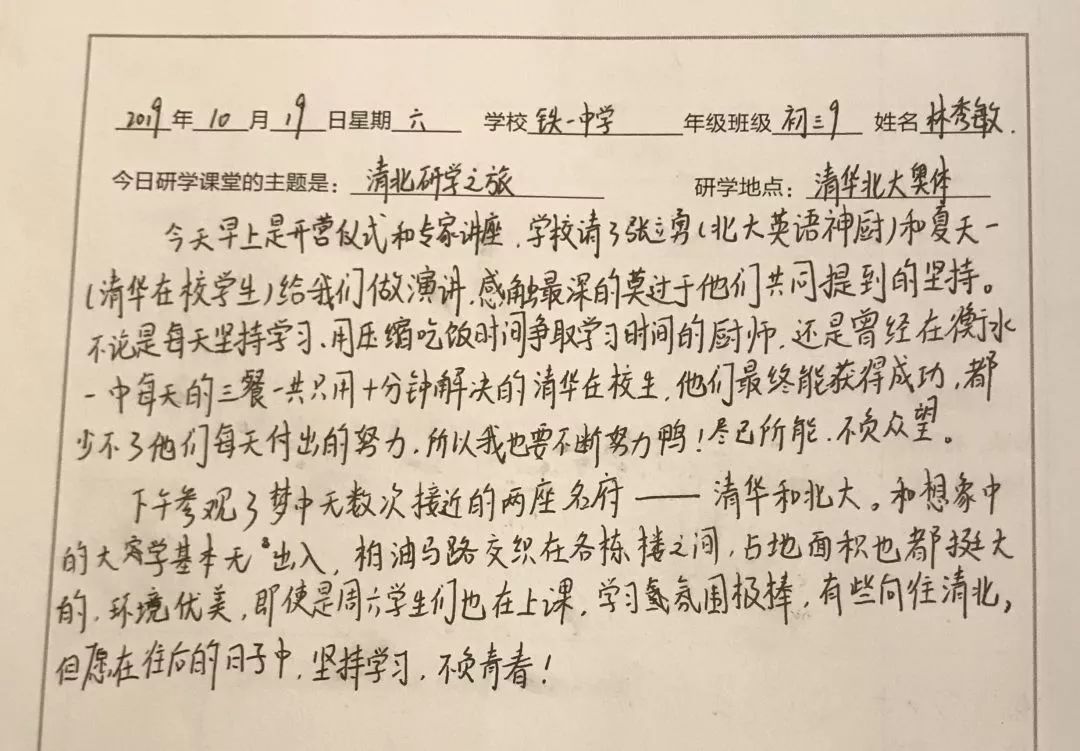 2019年10月19日星期六 学校铁一中学 年级班级初三9 姓名林秀敏.
今日研学课堂的主题是：清北研学之旅 研学地点：清华北大奥体
今天早上是开营仪式和专家讲座，学校请了张立勇（北大英语神厨）和夏天一
（清华在校学生）给我们做演讲，感触最深的莫过于他们共同提到的坚持。
不论是每天坚持学习、用压缩吃饭时间争取学习时间的厨师，还是曾经在衡水
一中每天的三餐一共只用十分钟解决的清华在校生，他们最终能获得成功，都
少不了他们每天付出的努力，所以我也要不断努力鸭！尽己所能，不负众望。
下午参观了梦中无数次接近的两座名府——清华和北大。和想象中
的大学基本无出入，柏油马路交织在各栋楼之间，占地面积也都挺大
的，环境优美，即使是周六学生们也在上课，学习氛围极棒，有些向往清北，
但愿在往后的日子中，坚持学习，不负青春！